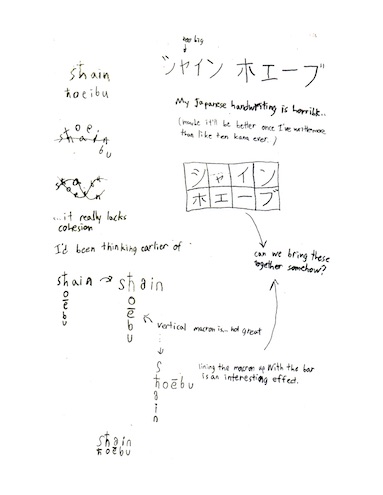 too big
シャイン ホエーブ
shain
hoeibu
My Japanese handwriting is horrible..
(maybe it'll be better once I've written more
than like ten kana ever..)
shain
oei
bu
シャイン
ホエーブ
...it really lacks
cohesion
I'd been thinking earlier of
can we bring these
together somehow?
shain
o
ē
b
u
shain
o
e
b
u
vertical macron is.. not great
s
hoēbu
a
i
n
lining the macron up with the bar
is an interesting effect.
shain
hoēbu